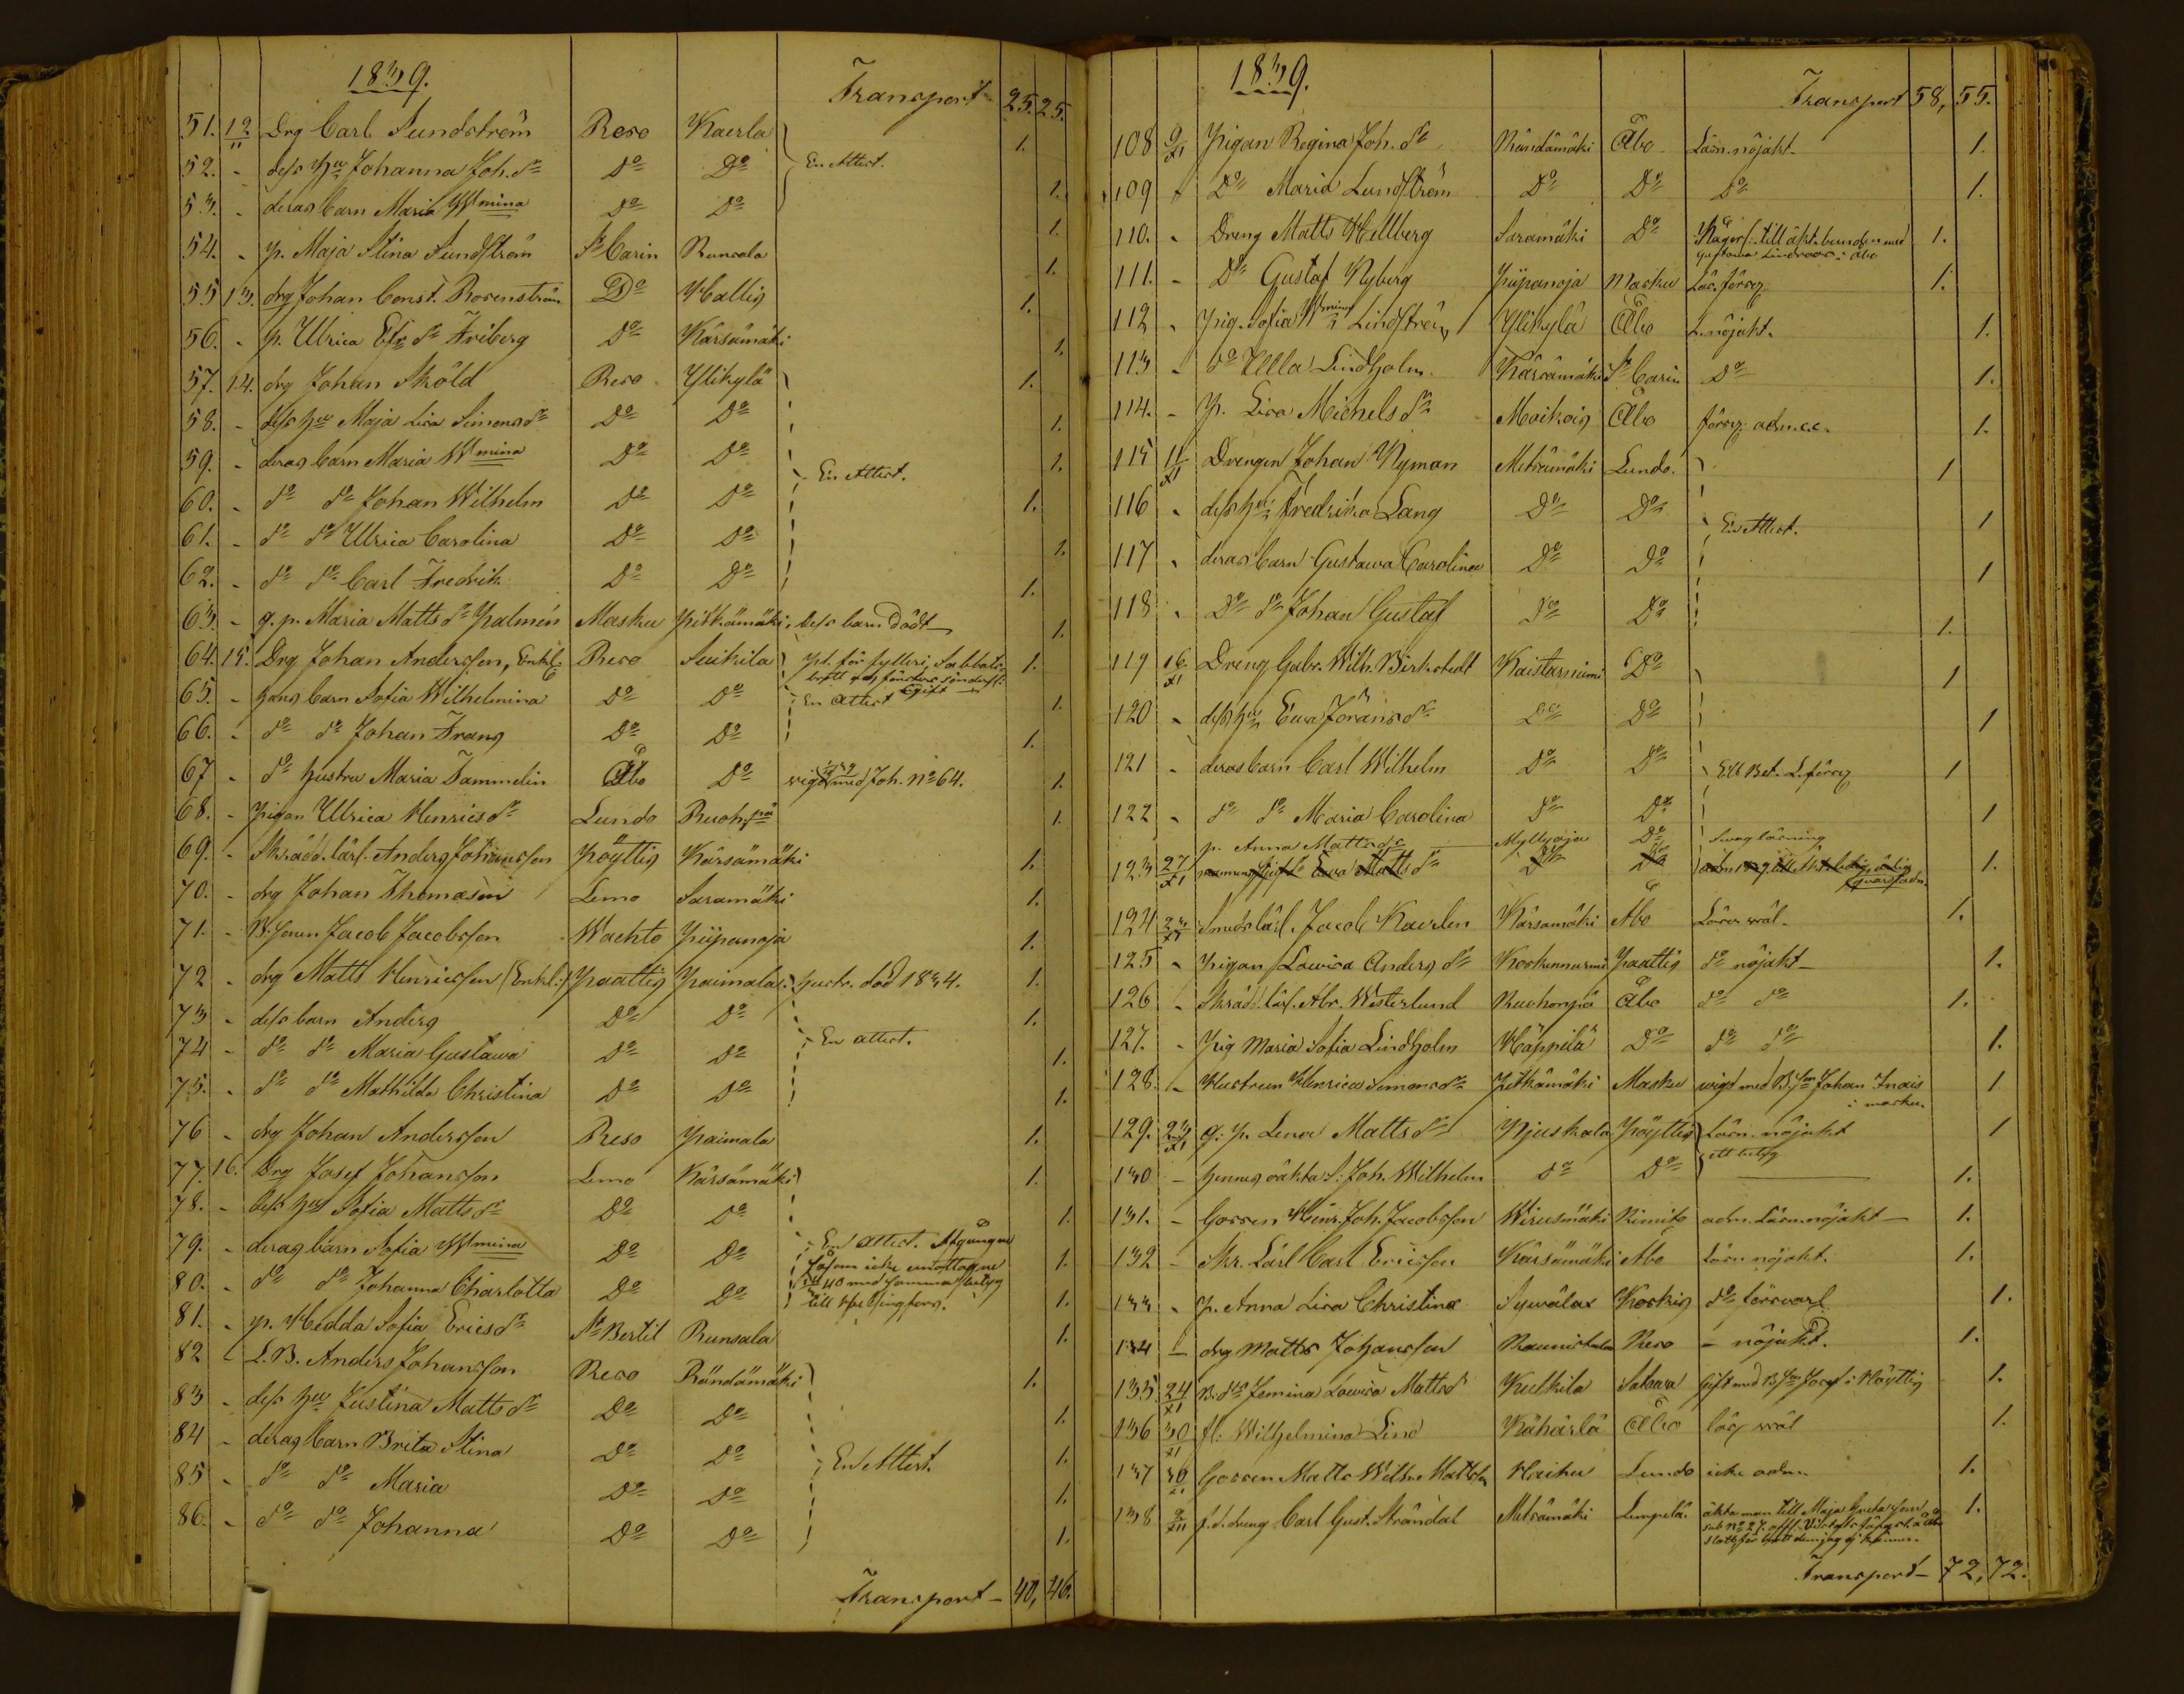 1839.
Transport 25. 25.
51. 12/11 Drg Carl Sundström Reso Kaerla 1.
52. - dess hu Johanna Joh. dr Do Do En Attest. 1.
53. - deras barn Maria Wmina Do Do 1.
54. - p. Maja Stina Sundström St Carin Runsala 1.
55 13. drg Johan Const. Rosenström Do Hallis 1.
56. - p. Ulrica dr Friberg Do Kärsämäki 1.
57. 14. drg Johan Sköld Reso Ylikylä 1.
58. - dess hu Maja Lisa Simonsdr Do Do 1.
59. - deras barn Maria Wmina Do Do En Attest. 1.
60. - do do Johan Wilhelm Do Do 1.
61. - do do Ulrica Carolina Do Do 1.
62. - do do Carl Fredrik Do Do 1.
63. - q.p. Maria Mattsdr Palmén Masku Pitkämäki, dess barn dödt 1.
64. 15. Drg Johan Andersson, Enkl. Reso Suikila pl. för fylleri, Sabbats- 1.
brott
65. - hans barn Sofia Wilhelmina Do Do En attest 1.
66. - do do Johan Frans Do Do 1.
67 - do hustru Maria Tammelin Åbo Do vigd med Joh. No 64. 1.
68. - pigan Ulrica Henricsdr Lundo Ruohpä 1.
69. - Skrädd. lärl. Anders Johansson Pöyttis Kärsämäki 1.
70. - drg Johan Thomasson Lemo Saramäki 1.
71. - B. sonen Jacob Jacobsson Wachto Piipanoja 1.
72 - drg Matts Henricsson (Enkl:) Paattis Paimala hustr. död 1834. 1.
73 - dess barn Anders Do Do 1.
74 - do do Maria Gustava Do Do En attest. 1.
75. - do do Mathilda Christina Do Do 1.
76 - drg Johan Andersson Reso Paimala 1.
77. 16. Drg Josef Johansson Lemo Kärsämäki 1.
78. - dess hu Sofia Mattsdr Do Do 1.
79. - deras barn Sofia Wmina Do Do En attest. Afgångne 1.
såsom icke emottagne
80. - do do Johanna Charlotta Do Do 1840 med samma betyg 1.
till Helsingfors.
81. - p. Hedda Sofia Ericsdr St Bertil Runsala 1.
82 - L.B. Anders Johansson Reso Rändämäki 1.
83 - dess hu Justina Mattsdr Do Do 1.
84 - deras barn Brita Stina Do Do En Attest. 1.
85 - do do Maria Do Do 1.
86. - do do Johanna Do Do 1.
Transport - 40, 46.
1839.
Transport 58, 55.
108 9/XI Pigan Regina Joh. dr Rändämäki Åbo Läsn. nöjakt. 1.
109 - Do Maria Lundström Do Do Do 1.
110. - Dreng Matts Hellberg Saramäki Do till äkt. bunden med 1.
Gustava Lindroos i Åbo
111. - Do Gustaf Nyberg Piipanoja Masku Läs. försv. 1.
112 - Pig. Sofia Wmina Lindström Ylikylä Åbo L. nöjakt. 1.
113 - do Ulla Lindholm Kärsämäki St Carin Do 1.
114. - P. Lisa Michelsdr Moikois Åbo försv. adm. 1.
115 11/XI Drengen Johan Nyman Metsämäki Lundo. 1
116 - dess hu Fredrika Lang Do Do En Attest. 1
117 - deras barn Gustava Carolina Do Do 1
118 - Do do Johan Gustaf Do Do 1.
119 16/XI Dreng Gabr. Wilh. Birkstedt Kaistarniemi Do 1
120 - dess hu Ewa Jöransdr Do Do 1
121 - deras barn Carl Wilhelm Do Do Ett Bet. L. försv. 1
122 - do do Maria Carolina Do Do 1
p. Anna Mattsdr Myllyoja Do Svag läsning
123 27/XI Ewa Mattsdr Do Do 1.
124 23/XI Smedslärl. Jacob Kaerlen Kärsämäki Åbo Läser wäl. 1.
125 - Pigan Lowisa Andersdr Koskennurmi Paattis do nöjakt. 1.
126 - Skrädd. lärl. Abr. Westerlund Ruohonpä Åbo do do 1.
127. - Pig Maria Sofia Lindholm Häppilä Do do do 1.
128. - Hustrun Henrica Simonsdr Pitkämäki Masku vigd med B.son Johan Inais 1
i Masku.
129. 23/XI q. p. Lena Mattsdr Njuskala Pöyttis Läsn. nöjakt 1
ett betyg
130 - hennes oäkta S: Joh. Wilhelm do Do 1.
131. - Gossen Henr. Joh. Jacobsson Wirusmäki Kimito adm. Läsn. nöjakt 1.
132 - Skr. Lärl Carl Ericsson Kärsämäki Åbo Läsn nöjakt. 1.
133 - p. Anna Lisa Christina Syvälax Korkis do försvarl. 1.
134 - drg Matts Johansson Raunistula Reso - nöjakt. 1.
135 24/XI B. dtr Jemina Lowisa Mattsdr Kulkila Gift med B.son Josef i Pöyttis 1.
136 30/XI fl: Wilhelmina Lind Kähärlä Åbo läs wäl 1.
137 30/XI Gossen Matts Wilh. Mattsson Haihu Lundo icke adm. 1.
138 2/XII f.d. dreng Carl Gust. Strandal Metsämäki Lempelä. äkta man till Maja Greta som 1.
sub No 27 Åbo
Slott för brott dem jag ej känner.
Transport - 72, 72.